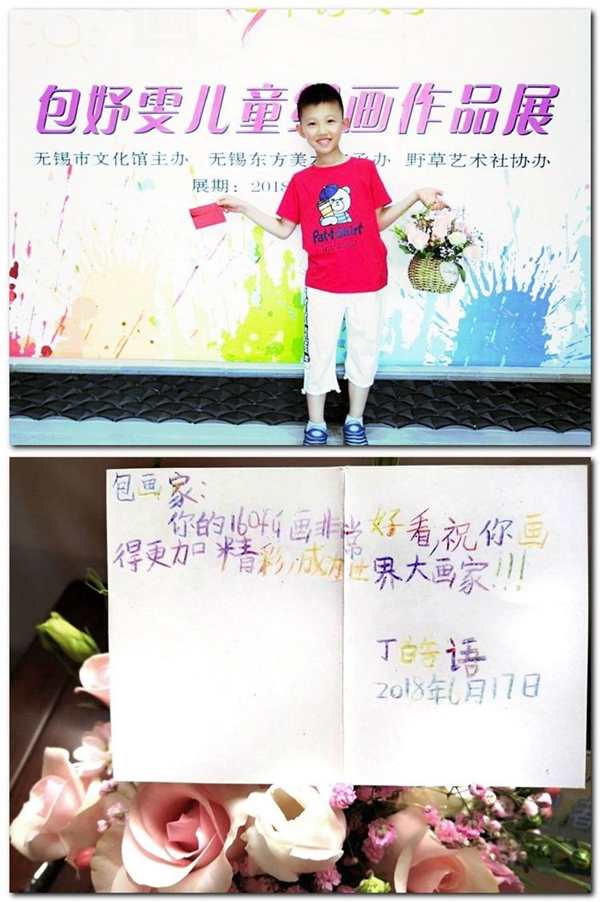 包妤雯儿童 画作品展
无锡市文化馆主办 无锡东方美 承办 野草艺术社协办
展期：2018
Pat-t-Shirt
包画家：
你的160幅画非常好看，祝你画
得更加精彩，成为世界大画家！！！
丁皓语
2018年6月17日